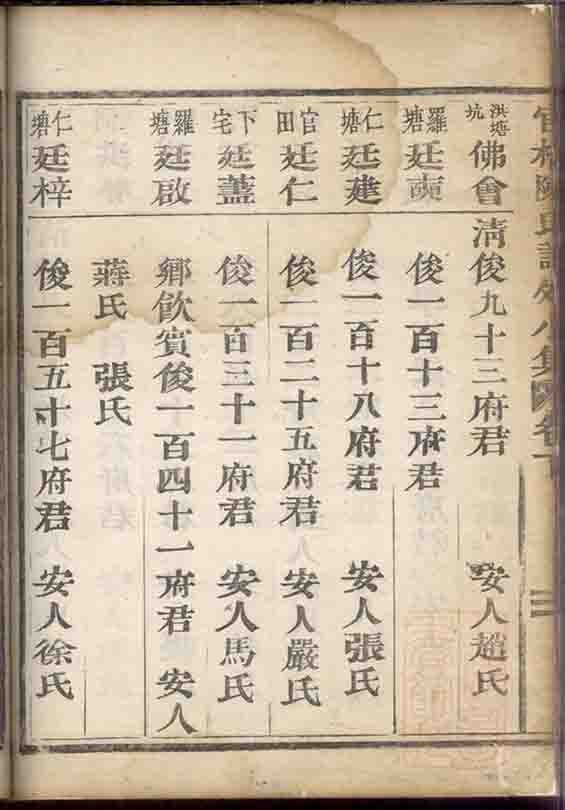 洪塘坑 佛會 清俊九十三府君 安人趙氏
羅塘 廷 俊一百十三府君
仁塘 廷建 俊一百十八府君 安人張氏
官田 廷仁 俊一百二十五府君 安人嚴氏
下宅 廷蓋 俊一百三十一府君 安人馬氏
羅塘 廷啟 鄉飲賓俊一百四十一府君 安人
蔣氏 張氏
仁塘 廷梓 俊一百五十七府君 安人徐氏